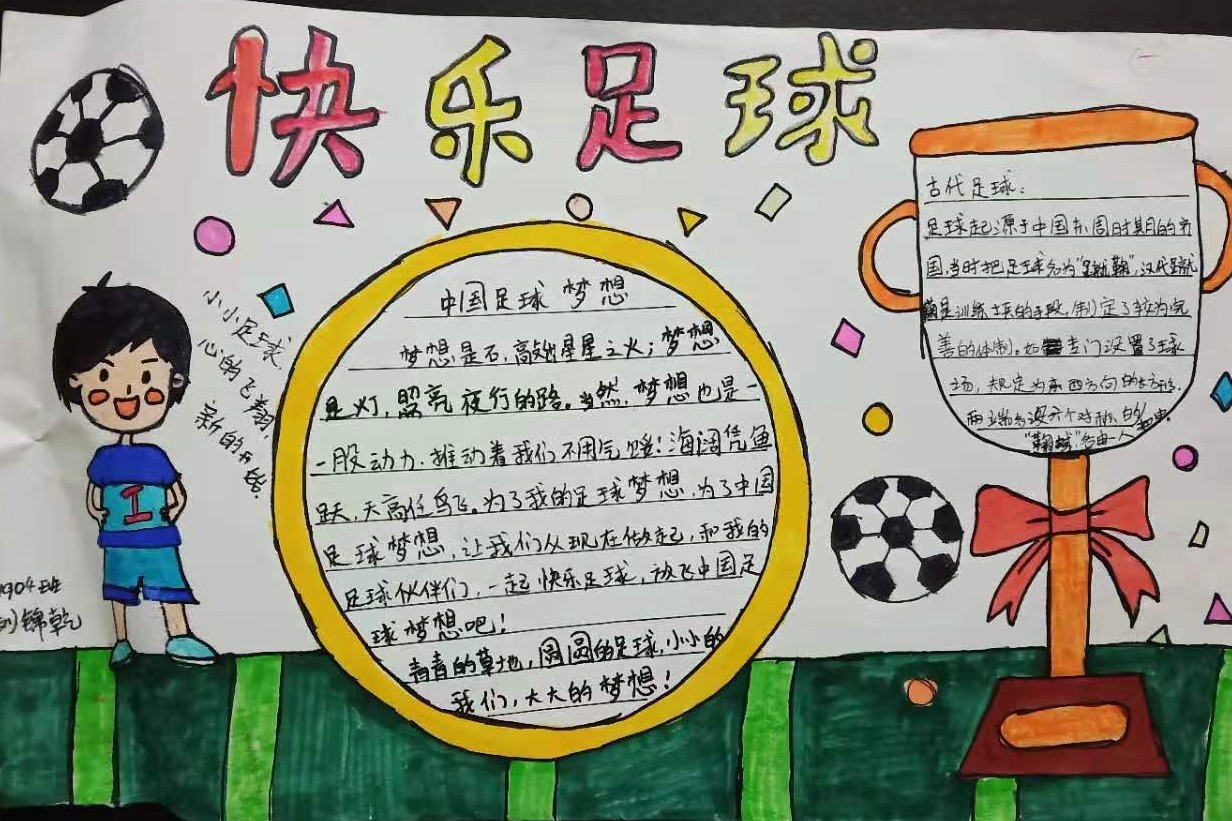 快乐足球
中国足球 梦想
梦想是石,高敲出星星之火;梦想
是灯,照亮夜行的路。当然,梦想也是一
一股动力.推动着我们不用气馁!海阔凭鱼
跃,天高任鸟飞。为了我的足球梦想,为了中国
足球梦想,让我们从现在做起,和我的
足球伙伴们,一起快乐足球,放飞中国足
球梦想吧!
青青的草地,圆圆的足球,小小的
我们,大大的梦想!
小小足球,
心的飞翔,
新的开始.
1904班
刘锦乾
古代足球:
足球起源于中国东周时期的齐
国,当时把足球名为“蹴鞠”,汉代蹴
鞠是训练士兵的手段,制定了较为完
善的体制。如专门设置了球
场,规定为东西方向的长方形,
两端各设六个对称的
“鞠域”各由一人